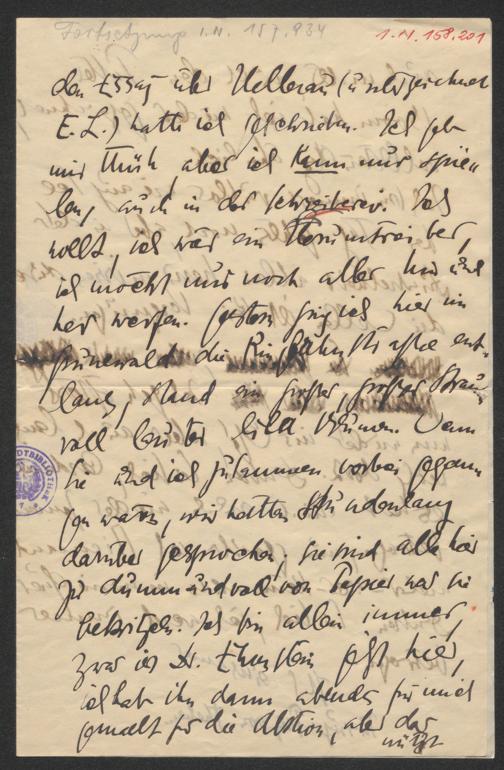 Fortsetzung I.N. 157.934
I.N. 158.201
den Essay über Hellerau (unterzeichnet
E.L.) hatte ich geschrieben. Ich geb
mir Müh, aber ich kann nur spie-
len, auch in der Schreiberei. Ich
wollt, ich wär ein Herumtreiber,
ich möcht nur noch alles hin und
her werfen. Gestern ging ich hier im
Grunewald die Ringbahnstraße ent-
lang, stand ein großer, großer Strau
voll lauter lila Blumen. Wenn
Sie und ich zusammen vorbei gegan
gen wären, wir hätten stundenlang
darüber gesprochen; sie sind alle hier
zu dumm und voll von Papier was sie
bekritzeln. Ich bin allein immer,
zwar ist Dr. Ehrenstein jetzt hier,
ich hab ihn dann abends für mich
gemalt für die Aktion, aber das
nützt